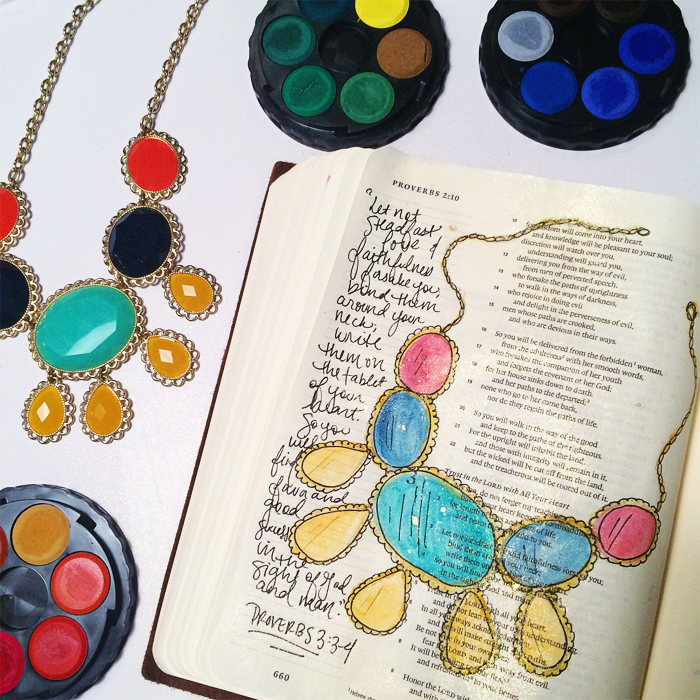 PROVERBS 2:10
"Let not
steadfast
love &
faithfulness
forsake you;
bind them
around your
neck;
write
them on
the tablet
of your
heart.
So you
will
find
favor and
good
success
in the
sight of God
and man."
PROVERBS 3:3-4
660
10 for wisdom will come into your heart,
and knowledge will be pleasant to your soul;
11 discretion will watch over you,
understanding will guard you,
12 delivering you from the way of evil,
from men of perverted speech,
13 who forsake the paths of uprightness
to walk in the ways of darkness,
14 who rejoice in doing evil
and delight in the perverseness of evil,
15 men whose paths are crooked,
and who are devious in their ways.
16 So you will be delivered from the forbidden woman,
from the adulteress with her smooth words,
17 who forsakes the companion of her youth
and forgets the covenant of her God;
18 for her house sinks down to death,
and her paths to the departed;
19 none who go to her come back,
nor do they regain the paths of life.
20 So you will walk in the way of the good
and keep to the paths of the righteous.
21 For the upright will inhabit the land,
and those with integrity will remain in it,
22 but the wicked will be cut off from the land,
and the treacherous will be rooted out of it.
Trust in the LORD with All Your Heart
do not forget my teaching,
your heart keep
length of days and years of life
and peace
Let not
faithfulness forsake you;
bind them
write them on
So you will find
in the sight of God
Trust in the LORD with all your heart,
and do not lean on your own understanding.
In all your ways acknowledge
he will make straight
Be not
fear the LORD, and turn
It will be healing
and refreshment
9 Honor the LORD with
Hebrew